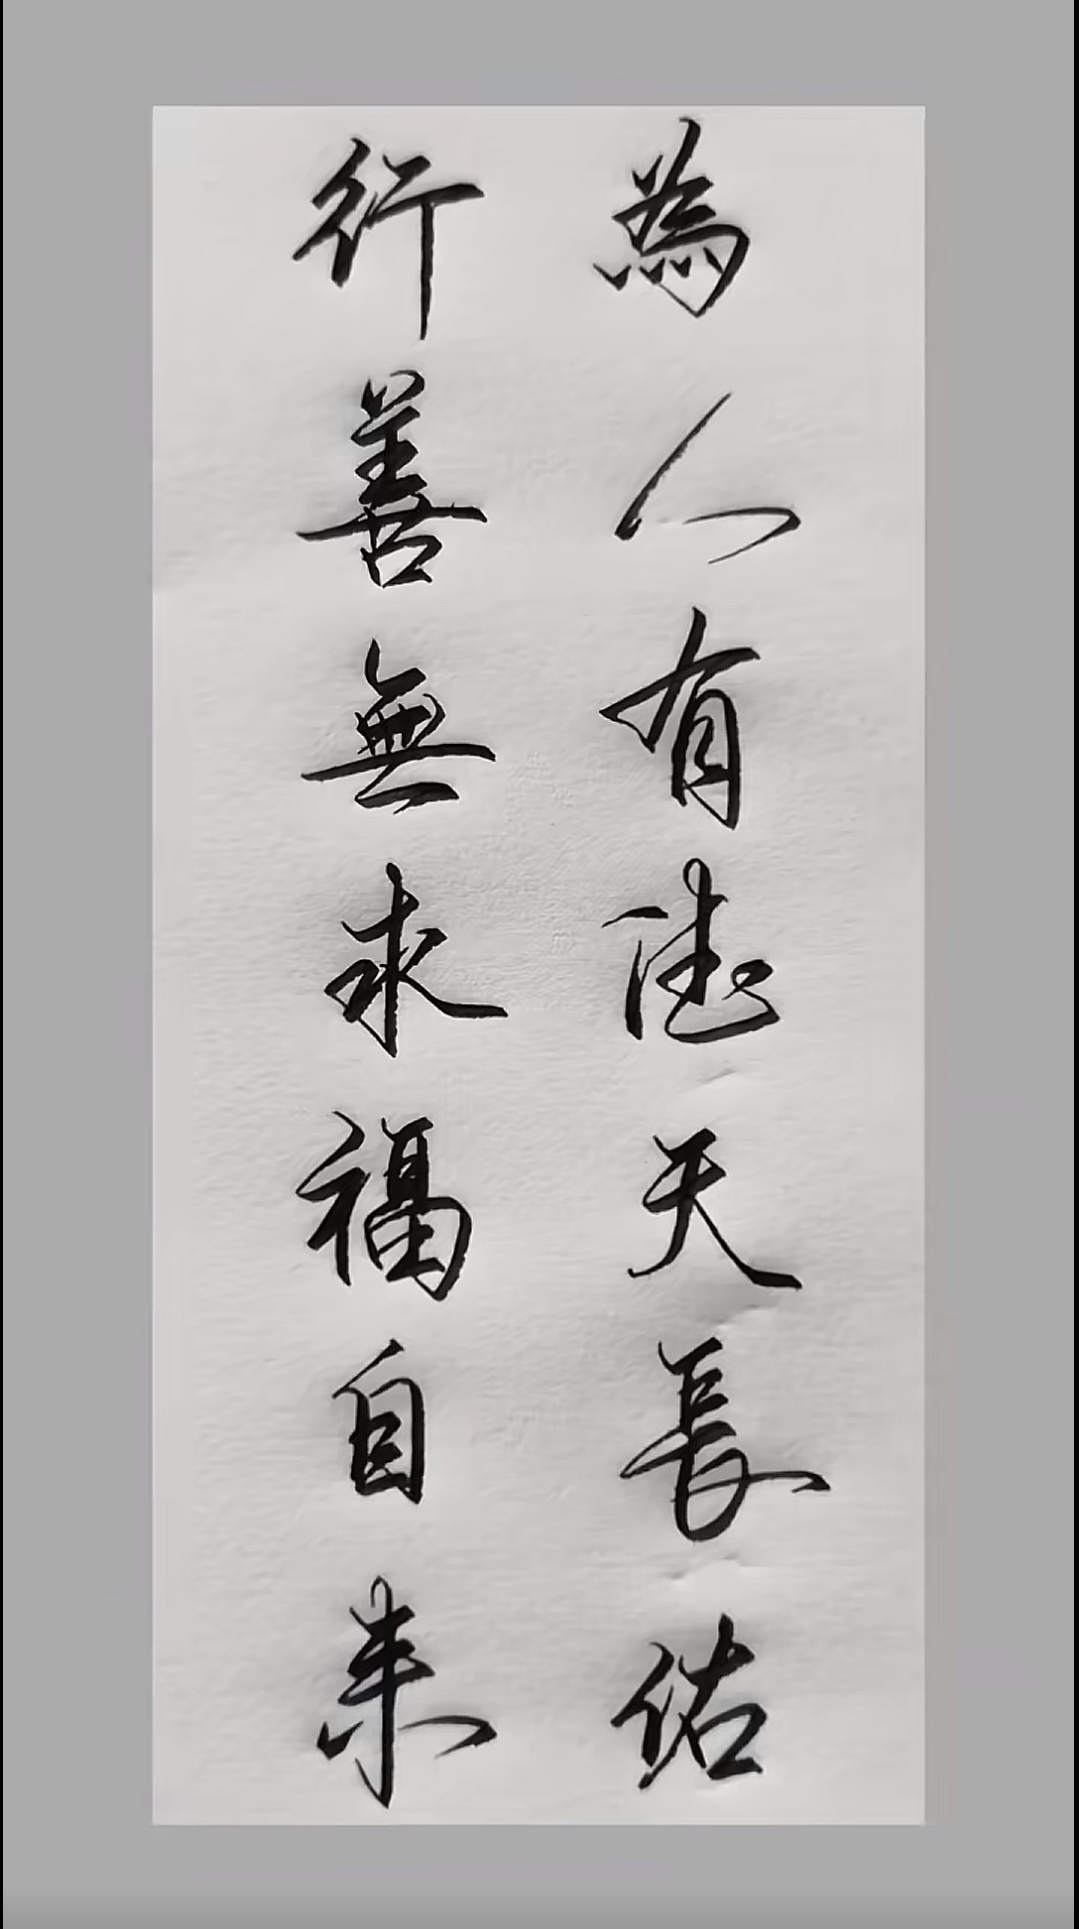 為人有德天長佑
行善無求福自来